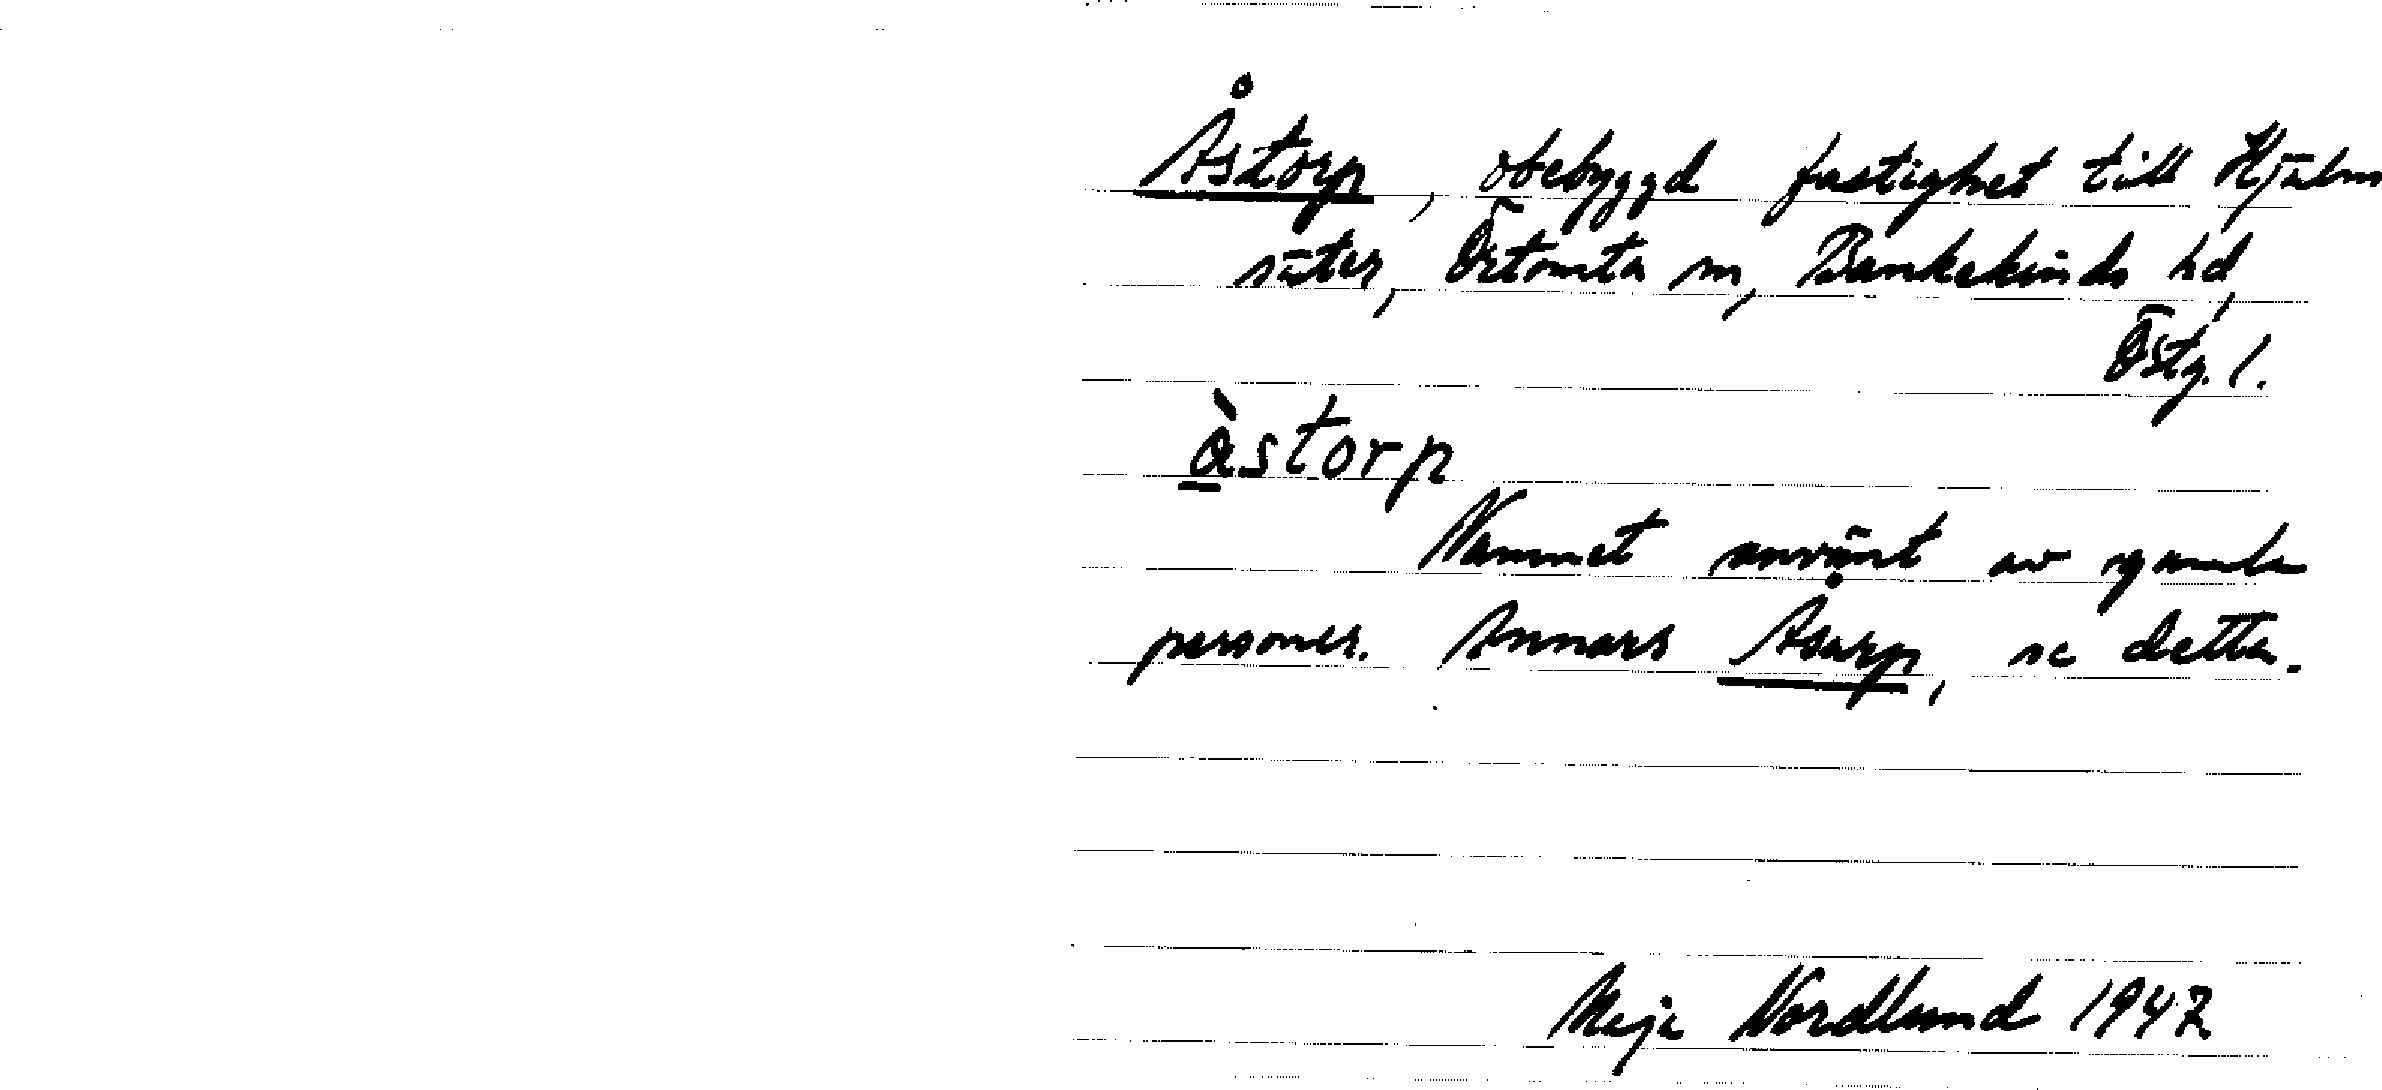 Åstorp, obebyggd fastighet till Hjälm
säter, Örtomta sn, Bankekinds hd,
Östg. l.
àstorp
Namnet använt av gamla
personer. Annars Åsarp, se detta.
Maja Nordlund 1947